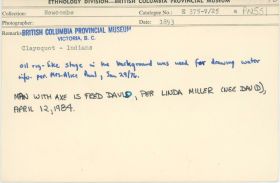 ETHNOLOGY DIVISION—BRITISH COLUMBIA PROVINCIAL MUSEUM
Collection: Newcombe Catalogue No.: E 375-4/25 PN551
Photographer: Date: 1893
Remarks: BRITISH COLUMBIA PROVINCIAL MUSEUM
VICTORIA, B. C.
Clayoquot - Indians
oil rig-like stage in the background was used for drawing water
info. per Mrs. Alice Paul, Jan 29/76.
MAN WITH AXE IS FRED DAVID, PER LINDA MILLER (NEE DAVID),
APRIL 12, 1984.